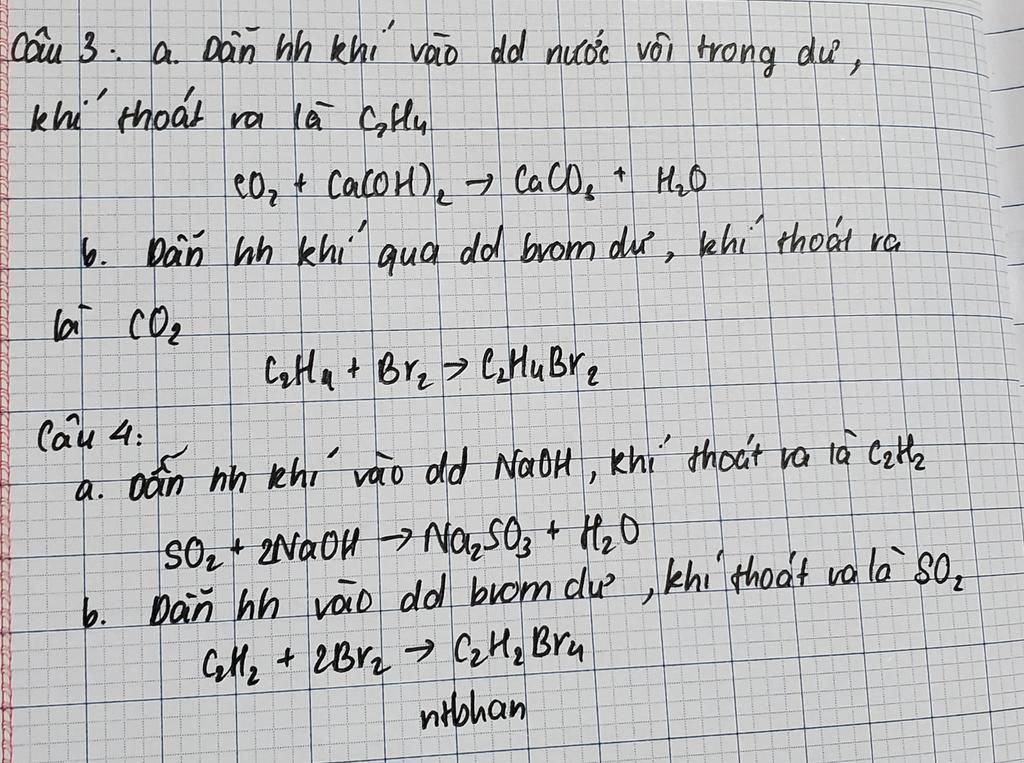 Câu 3: a. Dẫn hh khí vào dd nước vôi trong dư,
khí thoát ra là C₂H₄
CO₂ + Ca(OH)₂ → CaCO₃ + H₂O
b. Dẫn hh khí qua dd brom dư, khí thoát ra
là CO₂
C₂H₄ + Br₂ → C₂H₄Br₂
Câu 4:
a. Dẫn hh khí vào dd NaOH, khí thoát ra là C₂H₂
SO₂ + 2NaOH → Na₂SO₃ + H₂O
b. Dẫn hh vào dd brom dư, khí thoát ra là SO₂
C₂H₂ + 2Br₂ → C₂H₂Br₄